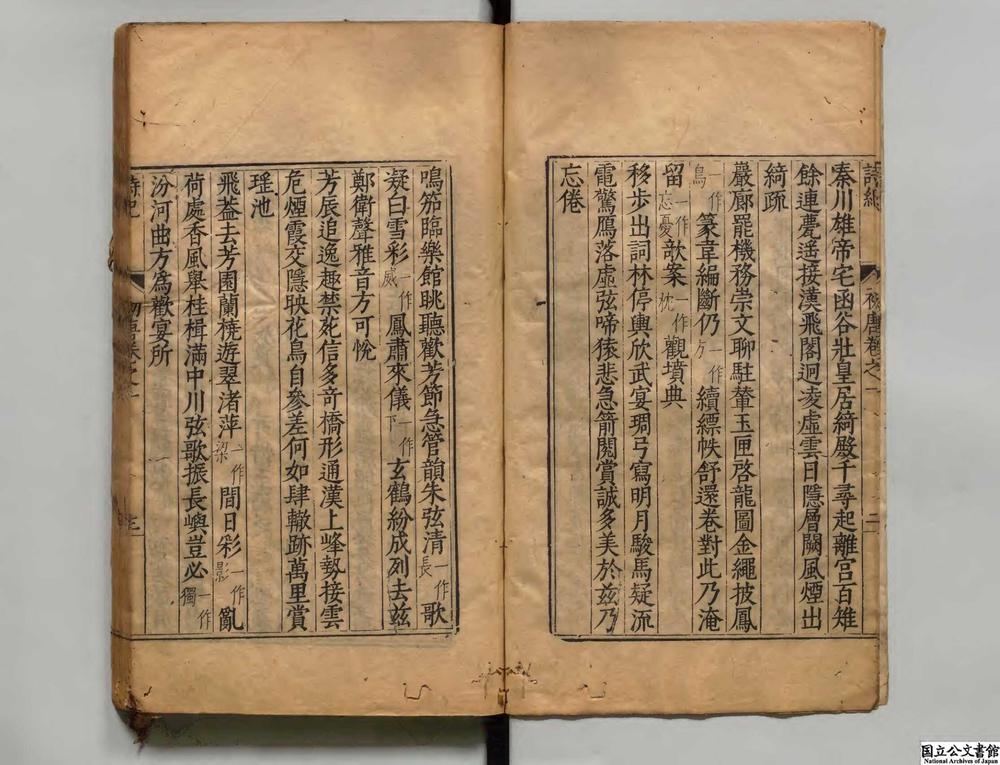 詩紀
初唐卷之一
二
秦川雄帝宅函谷壯皇居綺殿千尋起離宮百雉
餘連甍遥接漢飛閣迥凌虛雲日隱層闕風煙出
綺疏
巖廊罷機務崇文聊駐輦玉匣啓龍圖金繩披鳳
一作鳥篆韋編斷仍一作方續縹帙舒還卷對此乃淹
留一作忘憂歌案一作枕觀墳典
移步出詞林停輿欣武宴琱弓寫明月駿馬疑流
電驚鴈落虛弦啼猿悲急箭閱賞誠多美於兹乃
忘倦
鳴笳臨樂館眺聽歡芳節急管韻朱弦清一作長歌
凝白雪彩一作威鳳肅來儀一作下玄鶴紛成列去兹
鄭衛聲雅音方可悅
芳辰追逸趣禁苑信多奇橋形通漢上峰勢接雲
危煙霞交隱映花鳥自參差何如肆轍跡萬里賞
瑶池
飛葢去芳園蘭橈遊翠渚萍一作梁間日彩一作影亂
荷處香風舉桂楫滿中川弦歌振長嶼豈必一作獨
汾河曲方爲歡宴所
詩紀
初唐卷之一
国立公文書館
National Archives of Japan